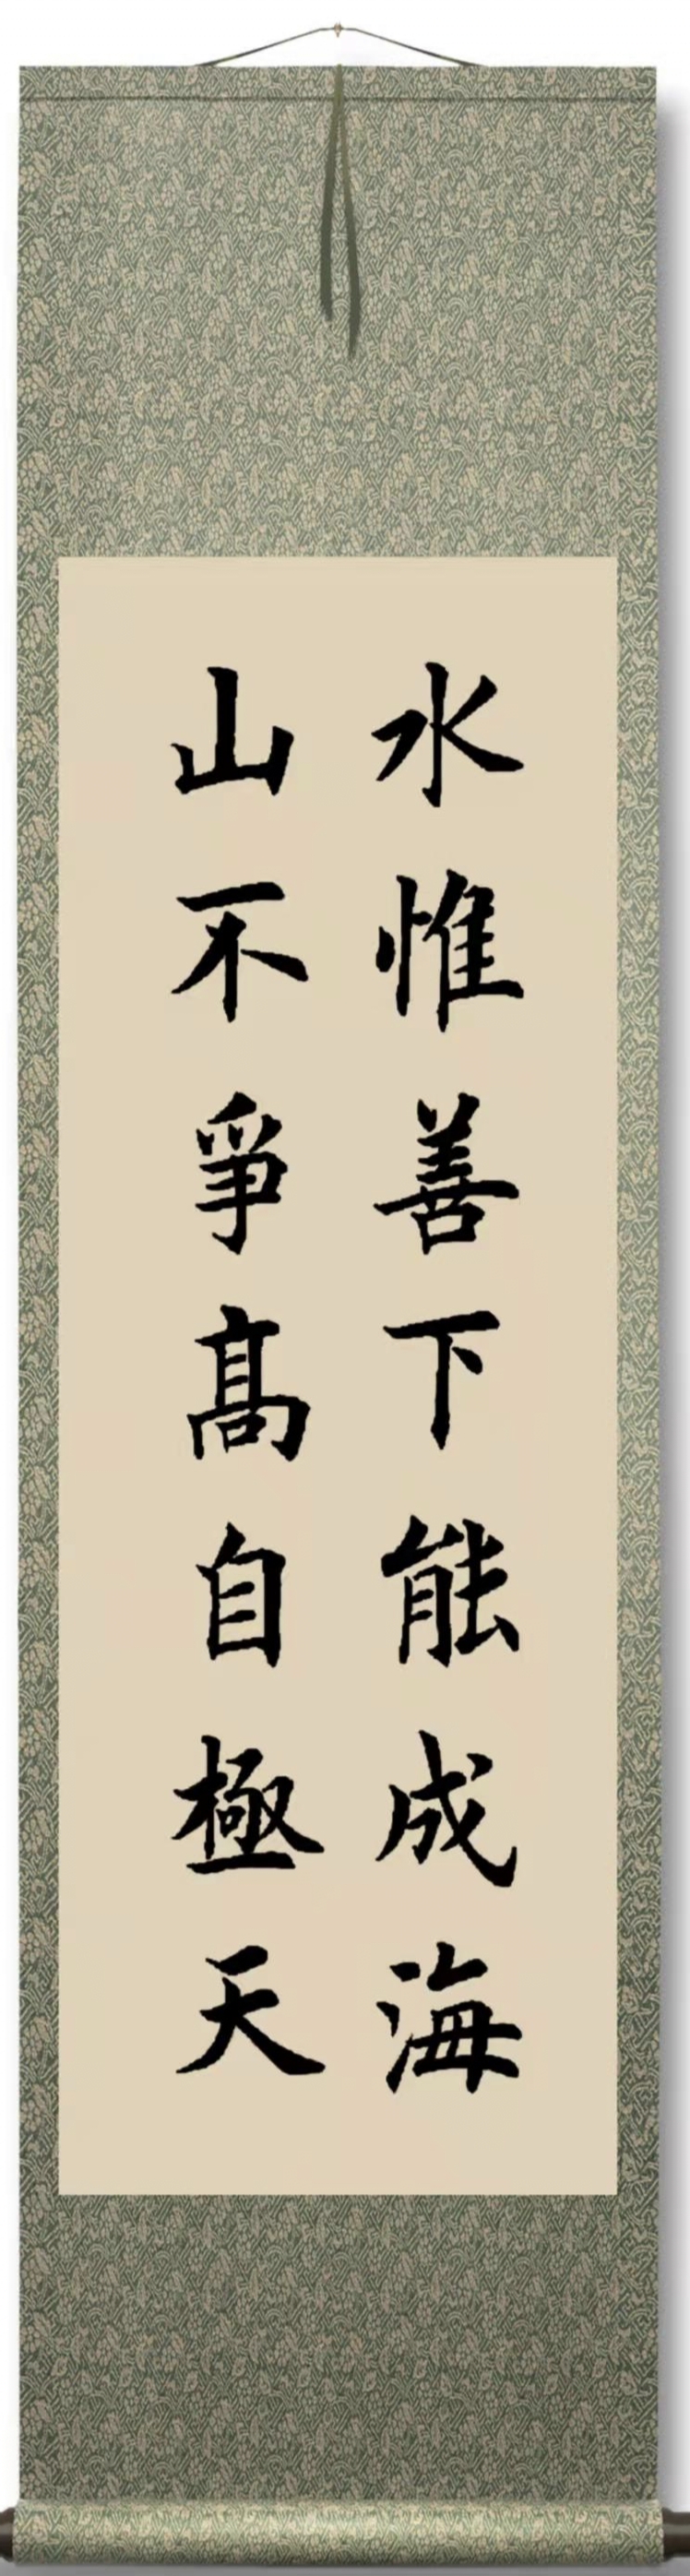 水惟善下能成海
山不爭髙自極天